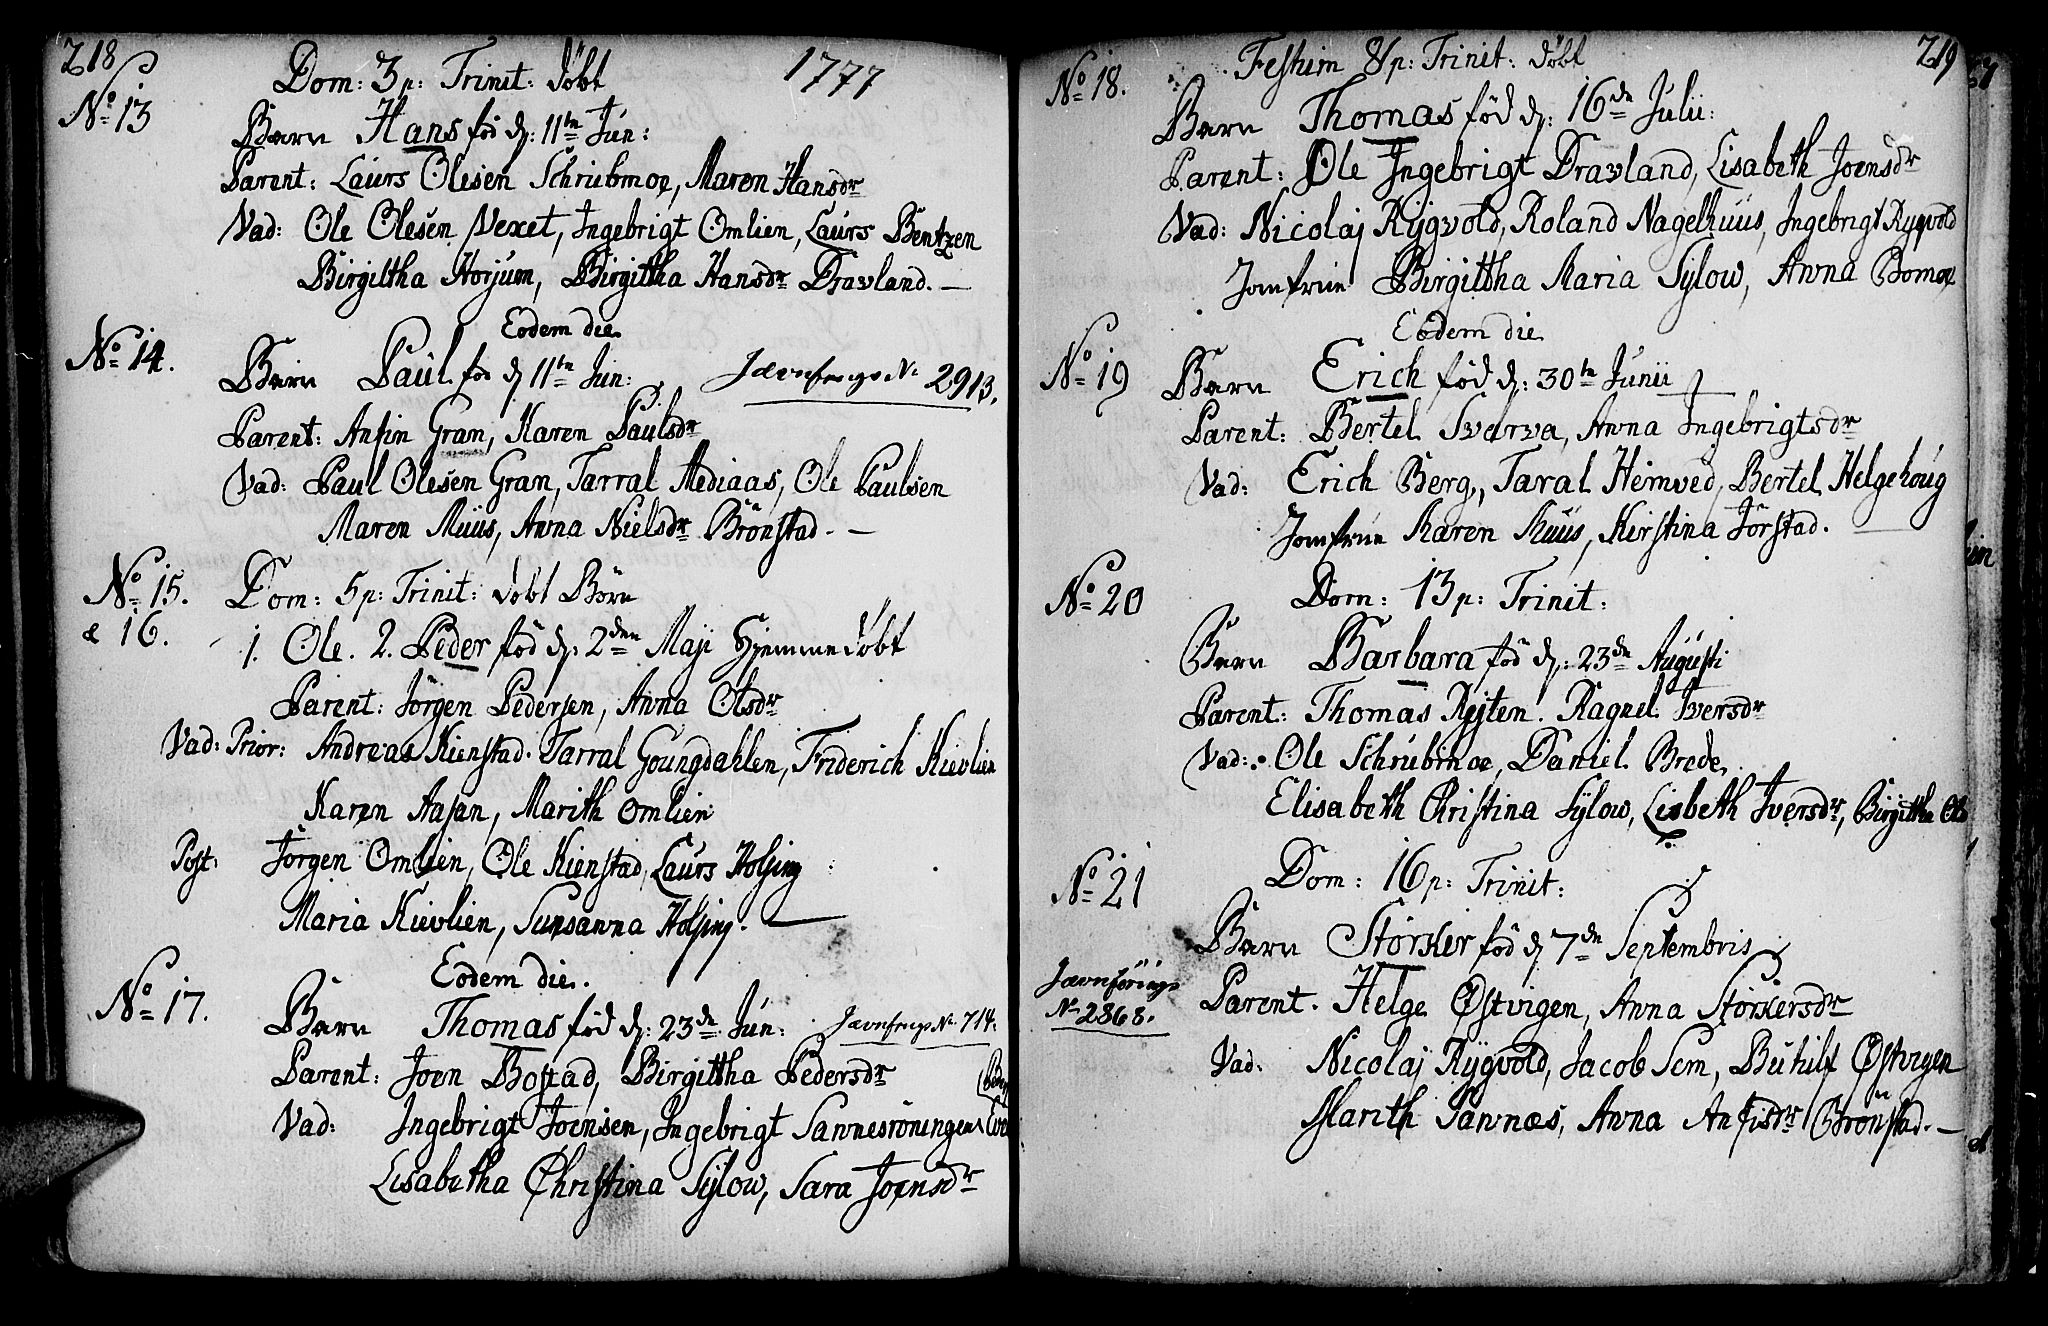 218
Dom: 3 p: Trinit: döbt 1777
No 13
Barn Hans föd d: 11te Jun:
Parent: Laurs Olesen Schrubmoe, Maren Hansdr
Vad: Ole Olesen Vexet, Ingebrigt Omlien, Laurs Bentzen
Birgittha Horjum, Birgittha Hansdr Dravland. —
Eodem die
No 14.
Barn Paul föd d 11te Jun: Jævnførings No 2913.
Parent: Anfin Gram, Karen Paulsdr
Vad: Paul Olesen Gram, Tarral Mediaas, Ole Paulsen
Maren Müus, Anna Nielsdr Brönstad. —
No 15. & 16.
Dom: 5 p: Trinit: döbt Börn
1. Ole. 2. Peder föd d: 2den Maji Hjemmedöbt
Parent: Jörgen Pedersen, Anna Olsdr
Vad: Prior: Andreas Kienstad. Tarral Goungdahlen, Friderich Kievlien
Karen Aasan, Marith Omlien
Post: Jörgen Omlien, Ole Kienstad, Laurs Holsing
Maria Kievlien, Sunsanna Holsing. —
Eodem die.
No 17.
Barn Thomas föd d: 23de Jun: Jævnførings No 714.
Parent: Joen Bostad, Birgittha Pedersdr
Vad: Ingebrigt Joensen, Ingebrigt Sannesröningen
Lisabetha Christina Sylow, Sara Joensdr
219
No 18.
Festum 8 p: Trinit: döbt
Barn Thomas föd d: 16de Julii:
Parent: Ole Ingebrigt Dravland, Lisabeth Joensdr
Vad: Nicolaj Rygvold, Roland Nagelhuus, Ingebrigt Rygvold
Jomfrue Birgittha Maria Sylow, Anna Bomoe
Eodem die
No 19
Barn Erich föd d: 30te Junii
Parent: Bertel Svarva, Anna Ingebrigtsdr
Vad: Erich Berg, Taral Hemved, Bertel Helgehoug
Jomfrue Maren Muus, Kirstina Jörstad.
No 20
Dom: 13 p: Trinit:
Barn Barbara föd d: 23de Augusti
Parent: Thomas Rejten. Ragnel Iversdr
Vad: Ole Schrubmoe, Daniel Brede
Elisabeth Christina Sylow, Lisbeth Iversdr, Birgitha
Dom: 16 p: Trinit:
No 21
Barn Störker föd d 7de Septembris
Jævnförings
No 2868.
Parent. Helge Østvigen, Anna Störkersdr
Vad. Nicolaj Rygvold, Jacob Sem, Buhilf Østvigen
Marith Sannæs, Anna Anfisdr Brönstad. —